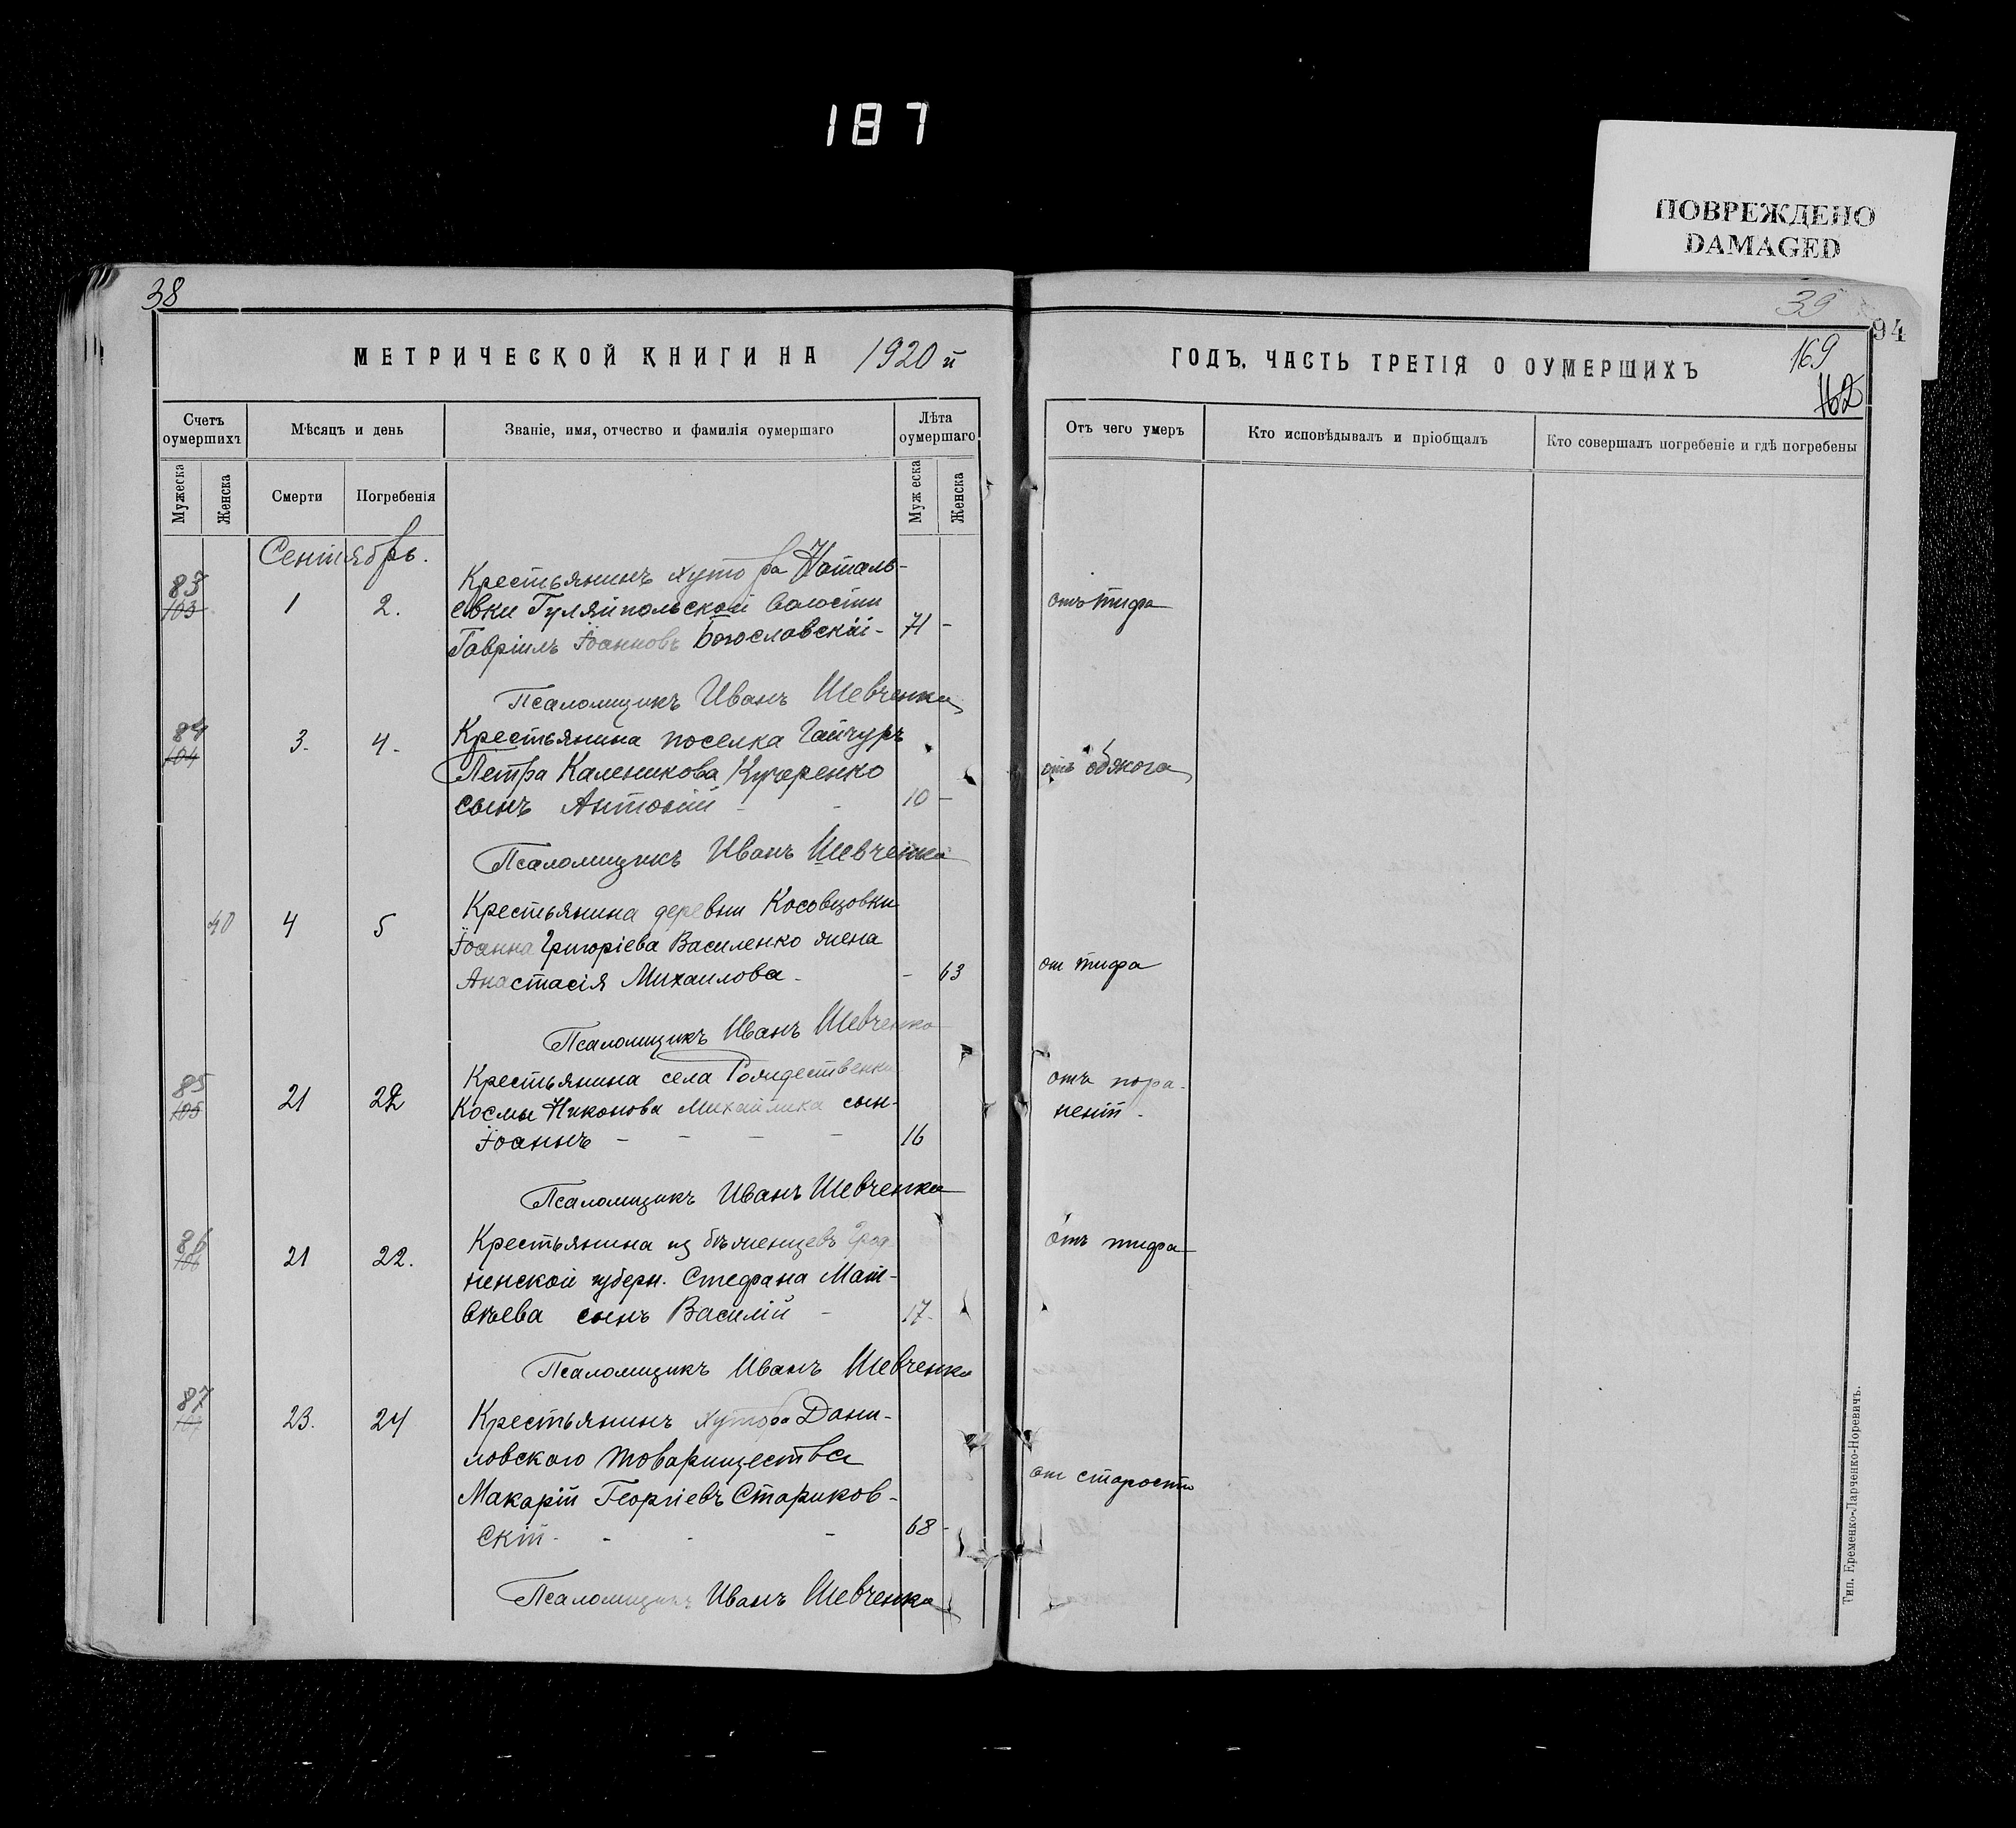 187
ПОВРЕЖДЕНО
DAMAGED
38
МЕТРИЧЕСКОЙ КНИГИ НА 1920 й
Счетъ оумершихъ
Мѣсяцъ и день
Званіе, имя, отчество и фамилія оумершаго
Лѣта оумершаго
Мужеска
Женска
Смерти
Погребенія
Муж еска
Женска
Сентябрь.
83
103
1
2.
Крестьянинъ хутора Наталь-
евки Гуляйпольской волости
Гавріилъ Іоанновъ Богославскій- 71 -
Псаломщикъ Иванъ Шевченко
84
104
3.
4.
Крестьянина поселка Гайчуръ
Петра Каленикова Кучеренко
сынъ Антоній - - 10 -
Псаломщикъ Иванъ Шевченко
40
4
5
Крестьянина деревни Косовцовки
Іоанна Григоріева Василенко жена
Анастасія Михаилова - - 63
Псаломщикъ Иванъ Шевченко
85
105
21
22
Крестьянина села Рождественки
Космы Никонова Михайлика сын-
Іоаннъ - - - - 16
Псаломщикъ Иванъ Шевченко
86
106
21
22.
Крестьянина из бѣженцевъ Грод-
ненской губерн. Стефана Мат-
вѣева сынъ Василій - 17-
Псаломщикъ Иванъ Шевченко
87
107
23.
24
Крестьянинъ хутора Дани-
ловского товарищества
Макарій Георгіевъ Стариков-
скій - - - - 68 -
Псаломщикъ Иванъ Шевченко
39
94
ГОДЪ. ЧАСТЬ ТРЕТІЯ О ОУМЕРШИХЪ
169
162
Отъ чего умеръ
Кто исповѣдывалъ и пріобщалъ
Кто совершалъ погребеніе и гдѣ погребены
отъ тифа
отъ обжога
от тифа
отъ пора-
неній -
отъ тифа
от старости
Тип. Еременко-Ларченко-Норевичъ.